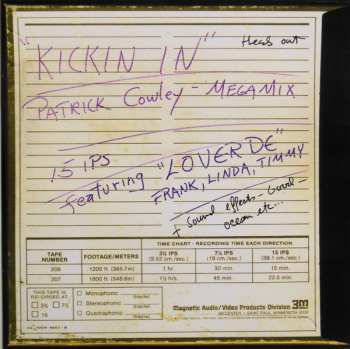 Heads out
"KICKIN IN"
PATRICK COWLEY - MEGAMIX
15 IPS
featuring "LOVERDE"
FRANK, LINDA, TIMMY
+ sound effects -
ocean etc...
TIME CHART - RECORDING TIME EACH DIRECTION
TAPE NUMBER FOOTAGE/METERS 3¾ IPS (9.52 cm/sec.) 7½ IPS (19 cm/sec.) 15 IPS (38.1 cm/sec.)
206 1200 ft. (365.7m) 1 hr. 30 min. 15 min.
207 1800 ft. (548.6m) 1½ hrs. 45 min. 22.5 min.
THIS TAPE IS RECORDED AT
3¾ 7½
15
Monophonic
Stereophonic
Quadraphonic
Magnetic Audio/Video Products Division 3M
3M CENTER · SAINT PAUL, MINNESOTA 55101